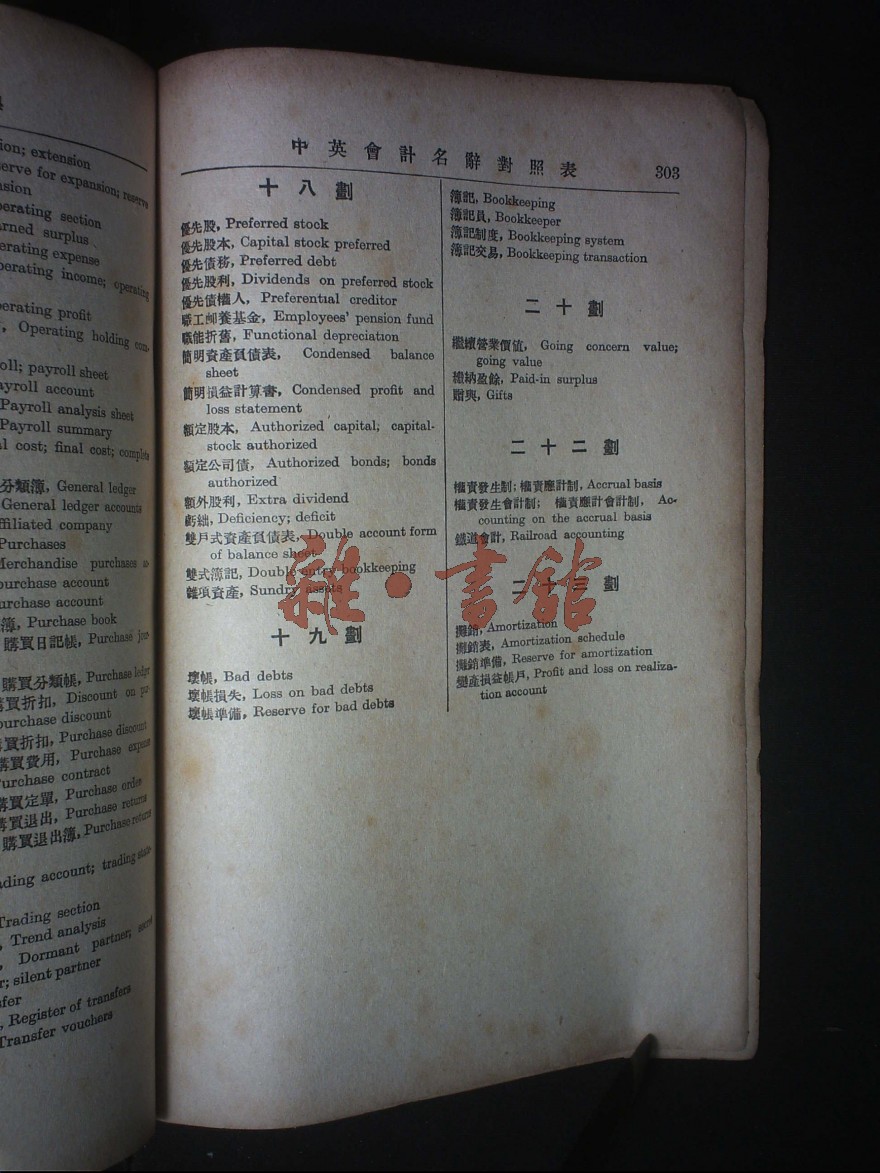 ion; extension
serve for expansion; reserve
nsion
perating section
rned surplus
erating expense
perating income; operating
perating profit
, Operating holding com-
oll; payroll sheet
ayroll account
Payroll analysis sheet
Payroll summary
al cost; final cost; complete
分類簿, General ledger
General ledger accounts
ffiliated company
Purchases
Merchandise purchases
purchase account
urchase account
簿, Purchase book
購買日記帳, Purchase jour-
購買分類帳, Purchase ledger
購買折扣, Discount on pu-
purchase discount
購買折扣, Purchase discount
購買費用, Purchase expense
Purchase contract
購買定單, Purchase order
購買退出, Purchase returns
購買退出簿, Purchase returns
ading account; trading state-
Trading section
, Trend analysis
, Dormant partner; secret
r; silent partner
sfer
, Register of transfers
Transfer vouchers
中英會計名辭對照表 303
十八劃
優先股, Preferred stock
優先股本, Capital stock preferred
優先債務, Preferred debt
優先股利, Dividends on preferred stock
優先債權人, Preferential creditor
職工卹養基金, Employees' pension fund
職能折舊, Functional depreciation
簡明資產負債表, Condensed balance
sheet
簡明損益計算書, Condensed profit and
loss statement
額定股本, Authorized capital; capital-
stock authorized
額定公司債, Authorized bonds; bonds
authorized
額外股利, Extra dividend
虧絀, Deficiency; deficit
雙戶式資產負債表, Double account form
of balance sheet
雙式簿記, Double entry bookkeeping
雜項資產, Sundry assets
十九劃
壞帳, Bad debts
壞帳損失, Loss on bad debts
壞帳準備, Reserve for bad debts
簿記, Bookkeeping
簿記員, Bookkeeper
簿記制度, Bookkeeping system
簿記交易, Bookkeeping transaction
二十劃
繼續營業價值, Going concern value;
going value
繳納盈餘, Paid-in surplus
贈與, Gifts
二十二劃
權責發生制; 權責應計制, Accrual basis
權責發生會計制; 權責應計會計制, Ac-
counting on the accrual basis
鐵道會計, Railroad accounting
二十三劃
攤銷, Amortization
攤銷表, Amortization schedule
攤銷準備, Reserve for amortization
變產損益帳戶, Profit and loss on realiza-
tion account
雜·書館